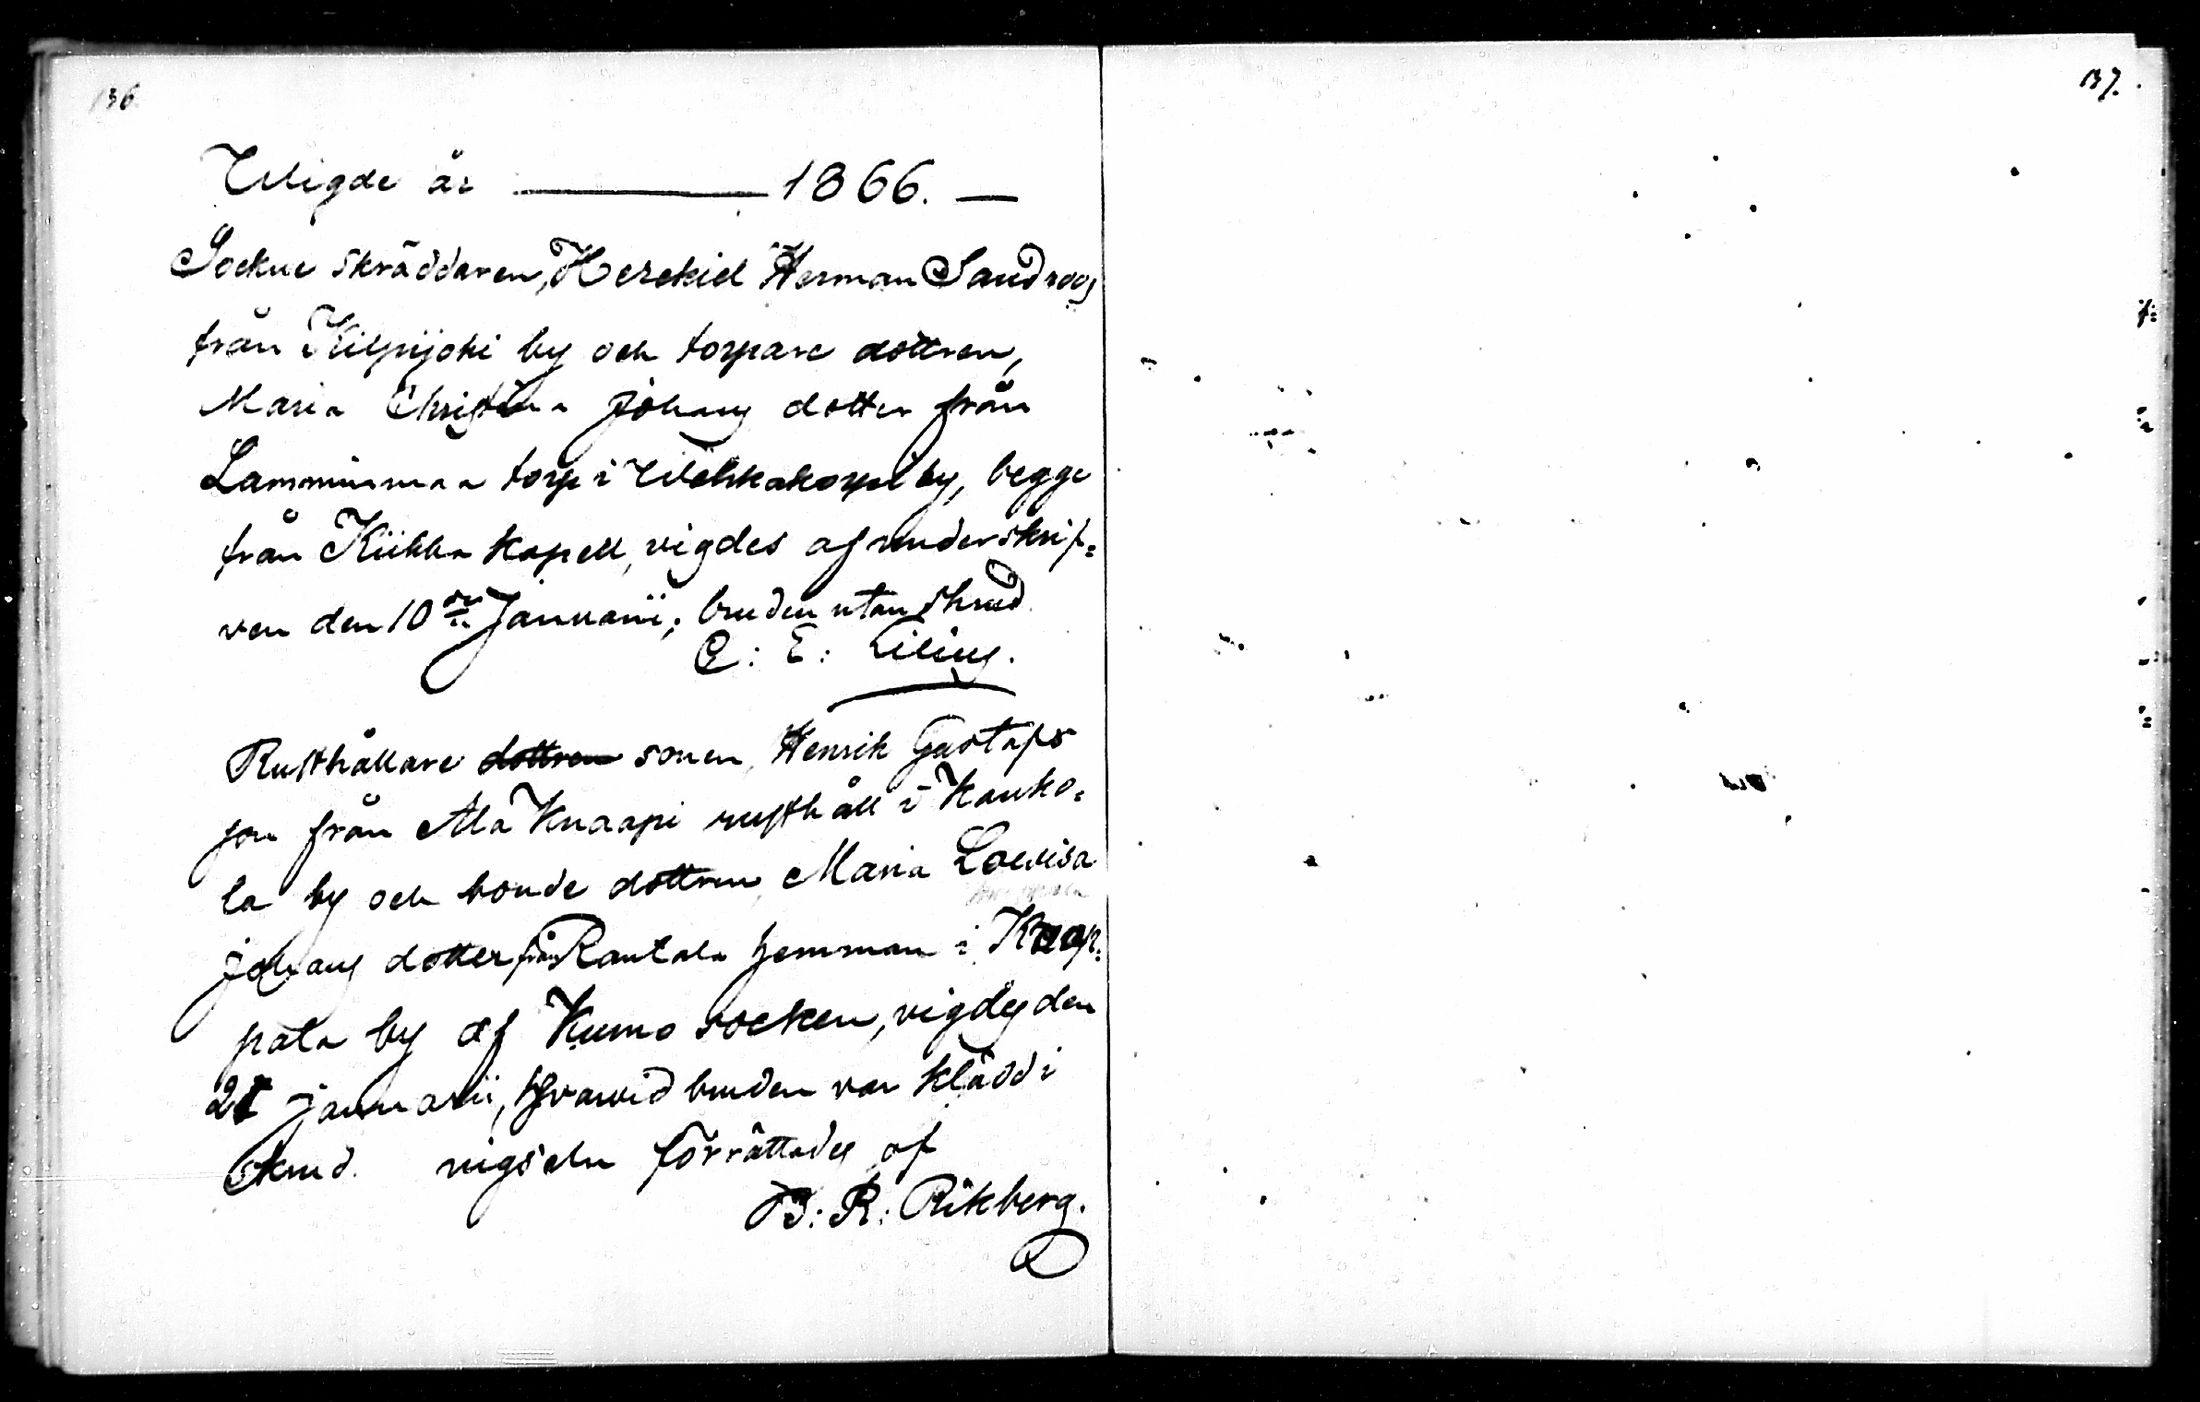 136.
137.
Wigde år 1866.
Sockne skräddaren, Hezekiel Herman Sandroos
från Kilpijoki by och torpare dottren,
Maria Christina Johans dotter från
Lamminmaa torp i Wehkakorpi by, begge
från Kiikka kapell, vigdes af underskrif=
ven den 10de Januarii; bruden utan skrud.
C: E: Lilius.
Rusthållare dottren sonen, Henrik Gustafs
son från Ala Knaapi rusthåll i Kauko=
la by och bonde dottren Maria Lowisa
Johans dotter från Rantala hemman i Kaap=
pala by af Kumo socken, vigdes den
21 januarii, hvarvid bruden var klädd i
skrud. vigseln förrättades af
B: R: Rikberg.